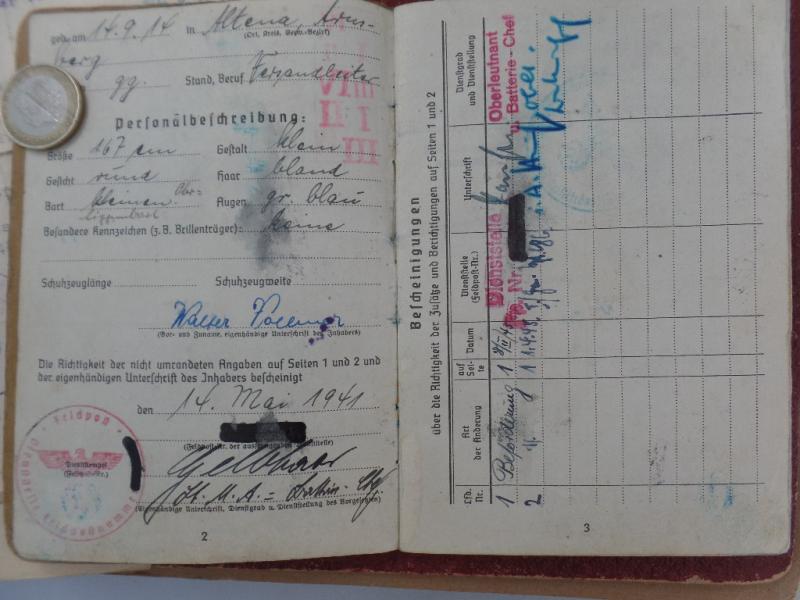 geb. am 14.9.14 in Altena, Arns-
(Ort, Kreis, Verw.-Bezirk)
berg
gg. Stand, Beruf Versandleiter
VIII
II I
III
Personalbeschreibung:
Größe 167 cm Gestalt klein
Gesicht rund Haar blond
Bart keinen Augen gr. blau
Besondere Kennzeichen (z.B. Brillenträger): keine
Schuhzeuglänge Schuhzeugweite
Walter Vollmer
(Vor- und Zuname, eigenhändige Unterschrift des Inhabers)
Die Richtigkeit der nicht umrandeten Angaben auf Seiten 1 und 2 und
der eigenhändigen Unterschrift des Inhabers bescheinigt
den 14. Mai 1941
(Feldpost-Nr. der ausstellenden Dienststelle)
Feldpost-
Dienststempel
(Feldpost-Nr.)
(Eigenhändige Unterschrift, Dienstgrad u. Dienststellung des Vorgesetzten)
2
Bescheinigungen
über die Richtigkeit der Zusätze und Berichtigungen auf Seiten 1 und 2
Lfd. Nr.
Art der Änderung
auf Sei- te
Datum
Dienststelle (Feldpost-Nr.)
Unterschrift
Dienstgrad und Dienststellung
1 Beförderung 1
Dienststelle
Nr.
Oberleutnant
u. Batterie-Chef
2 " 1
3